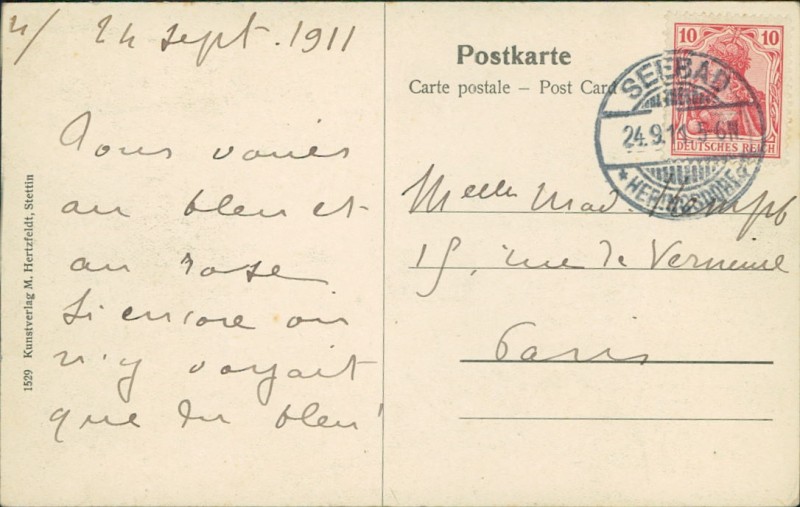 4/ 24 sept. 1911
Tous vouiés
au bleu et
au rose
Si encore on
n'y voyait
que du bleu!
1529 Kunstverlag M. Hertzfeldt, Stettin
Postkarte
Carte postale – Post Card
10 10
DEUTSCHES REICH
SEEBAD
24.9.11 5-6N.
* HERINGSDORF *
Melle Mad. Kempf
15, rue de Verneuil
Paris